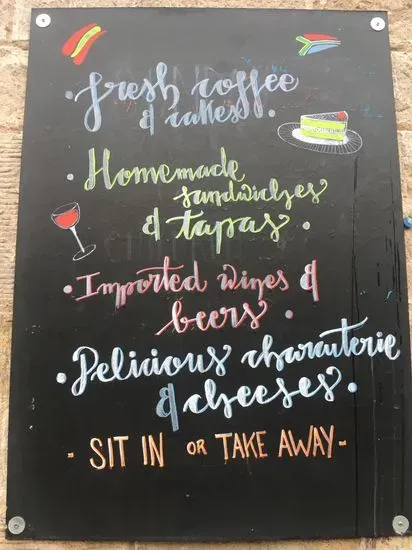 • fresh coffee
& cakes •
• Homemade
sandwiches
& tapas •
• Imported wines &
beers •
• Delicious charcuterie
& cheeses •
- SIT IN OR TAKE AWAY -